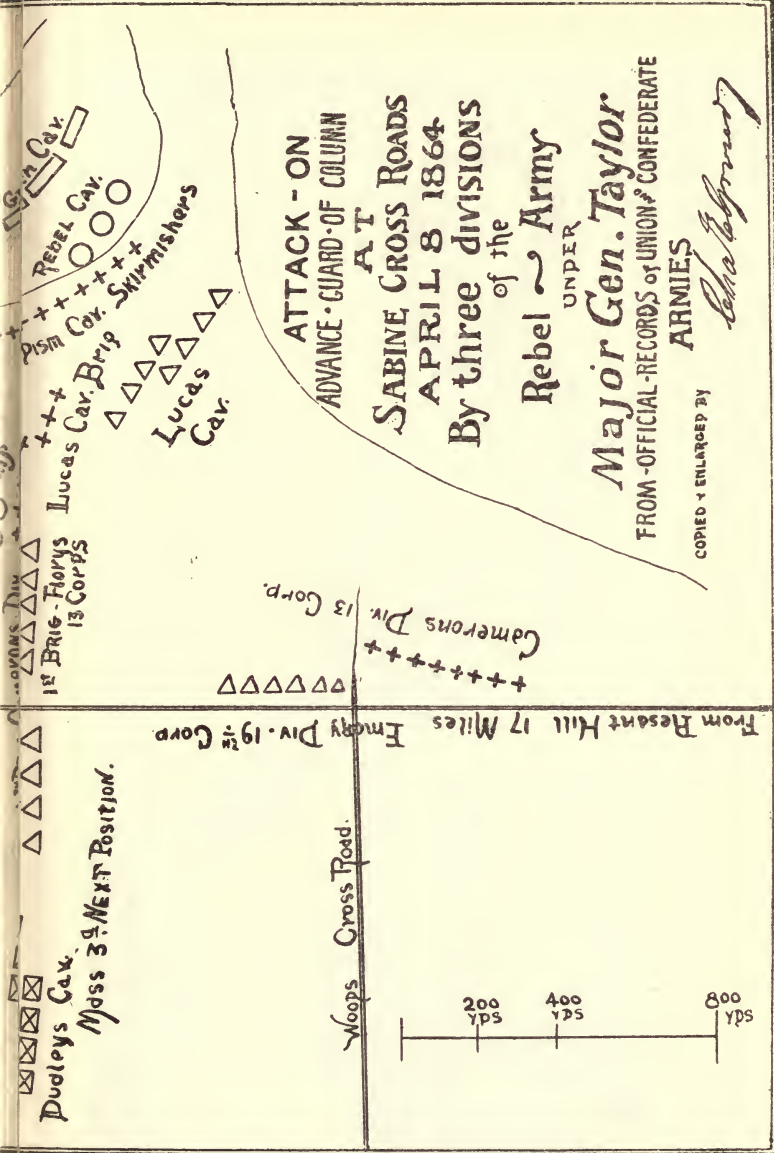 ATTACK - ON
ADVANCE • GUARD • OF COLUMN
AT
SABINE CROSS ROADS
APRIL 8 1864
By three divisions
of the
Rebel ~ Army
UNDER
Major Gen. Taylor
FROM - OFFICIAL - RECORDS of UNION & CONFEDERATE
ARMIES
COPIED & ENLARGED BY
Cav.
REBEL CAV.
Cav. Skirmishers
Lucas Cav. Brig
Lucas
Cav.
1st BRIG - Florys
13 CORPS
Camerons Div. 13 Corp.
Emery Div. 19th Corp
From Plesant Hill 17 Miles
Mass 3d NEXT POSITION.
Dudleys Cav.
Woops Cross Road.
200
YDS
400
YDS
800
YDS